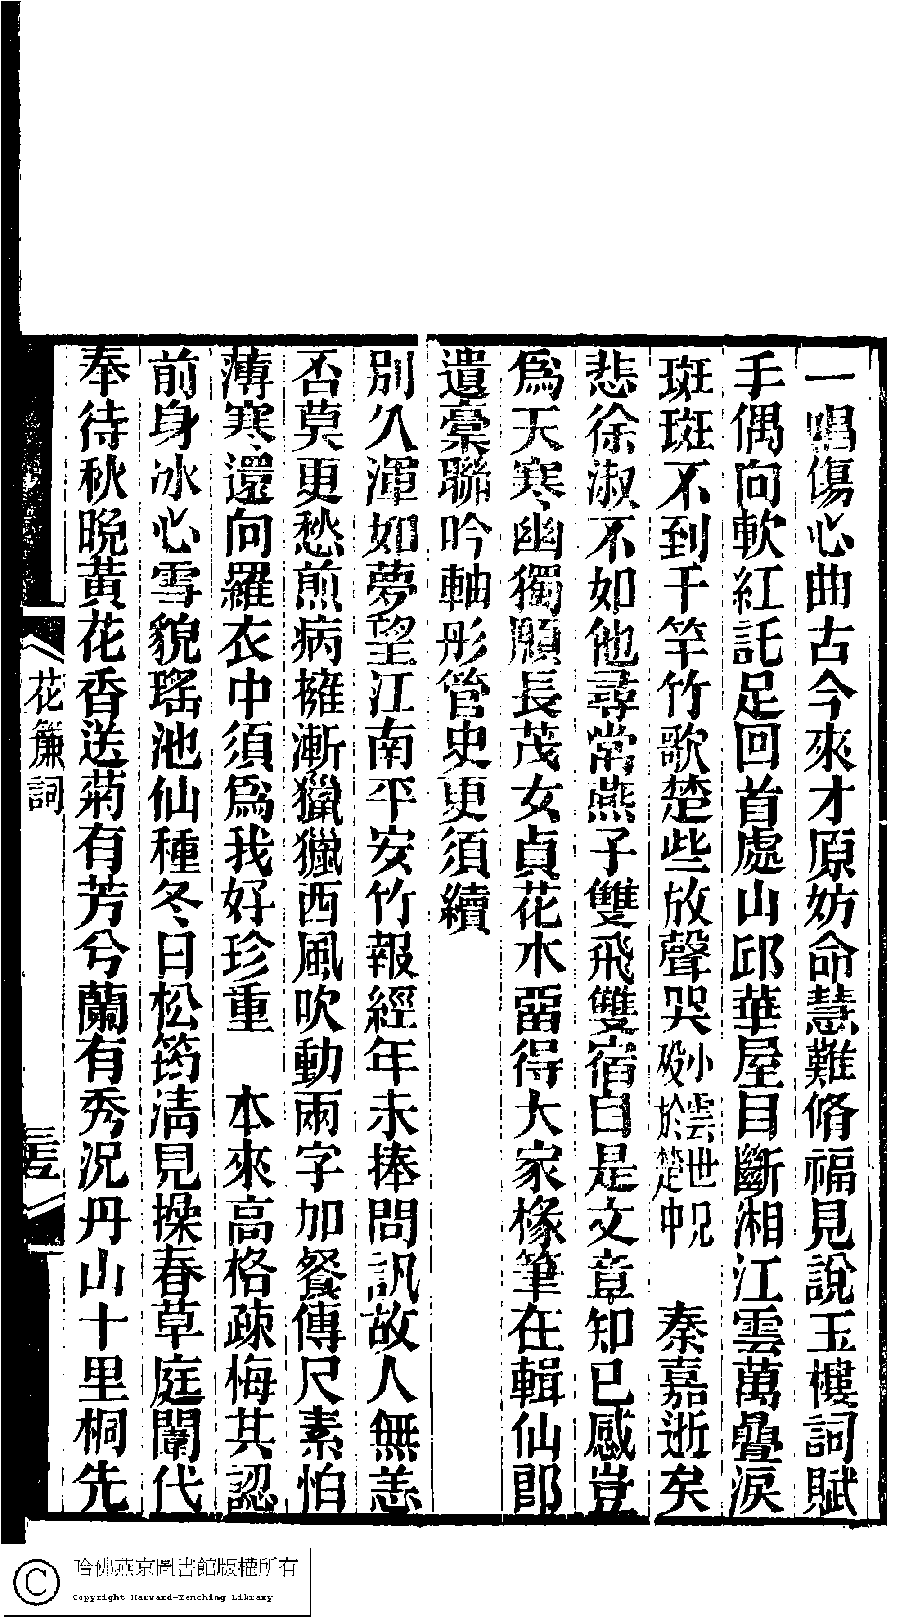 一唱傷心曲古今來才原妨命慧難脩福見說玉樓詞賦
手偶向軟紅託足回首處山邱華屋目斷湘江雲萬疊淚
斑斑不到千竿竹歌楚些放聲哭小雲世兄歿於楚中　秦嘉逝矣
悲徐淑不如他尋常燕子雙飛雙宿自是文章知已感豈
爲天寒幽獨願長茂女貞花木畱得大家椽筆在輯仙郎
遺稾聯吟軸彤管史更須續
別久渾如夢望江南平安竹報經年未捧問訊故人無恙
否莫更愁煎病擁漸獵獵西風吹動兩字加餐傳尺素怕
薄寒還向羅衣中須爲我好珍重　本來高格疎梅共認
前身冰心雪貌瑤池仙種冬日松筠淸見操春草庭闈代
奉待秋晚黃花香送菊有芳兮蘭有秀況丹山十里桐先
花簾詞
哈佛燕京圖書館版權所有
Copyright Harvard-Yenching Library